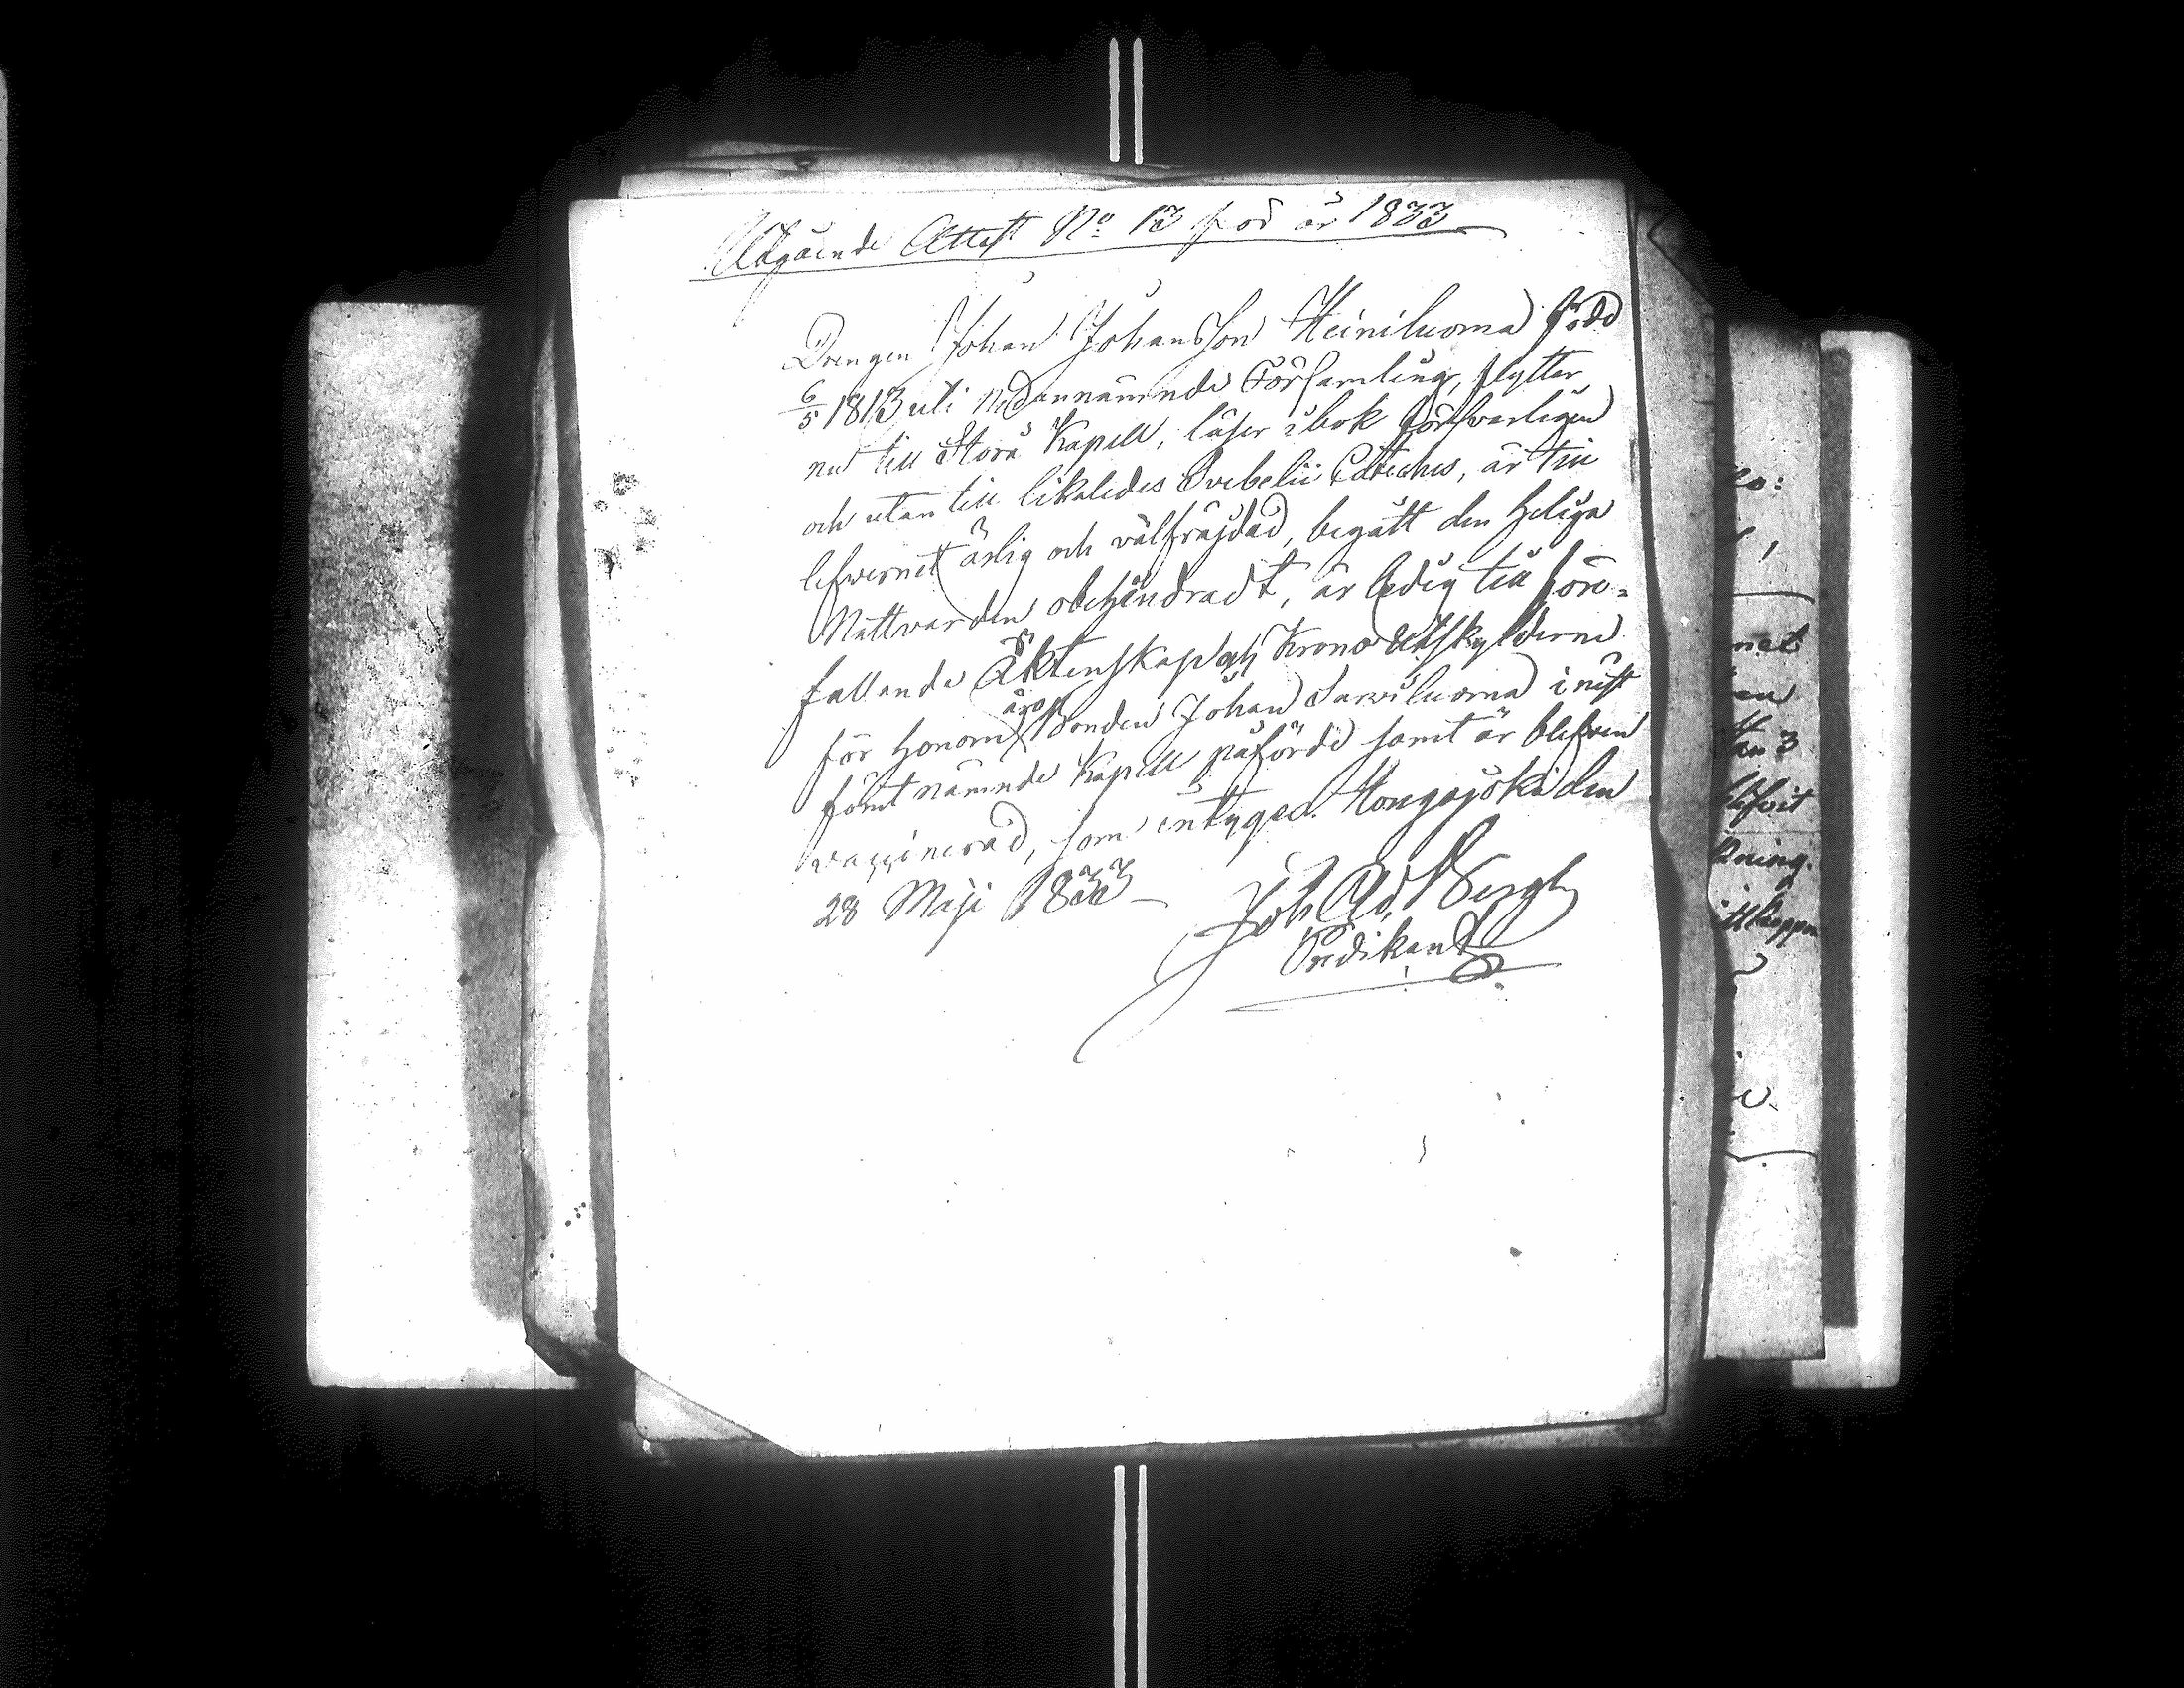 Utgående Attest No 13 för år 1833
Drengen Johan Johansson Heiniluoma född
6/5 1813 uti Nedannämnde Församling, flyttar
nu till Storå Kapell, läser i bok försvarligen
och utan till likaledes Svebelii Cateches, är till
lefvernet ärlig och välfräjdad, begått den Heliga
Nattvarden obehindradt, är ledig till före-
fallande Äktenskap och Krono Utskylderne
för honom äro Bonden Johan Sarviluoma i näst
förut nämnde Kapell påförde samt är blefven
vaccinerad, som intygas. Hongojoki den
28 Maji 1833
Joh. Ad. Bergh
Predikant
ro:
net
an 3
kning.